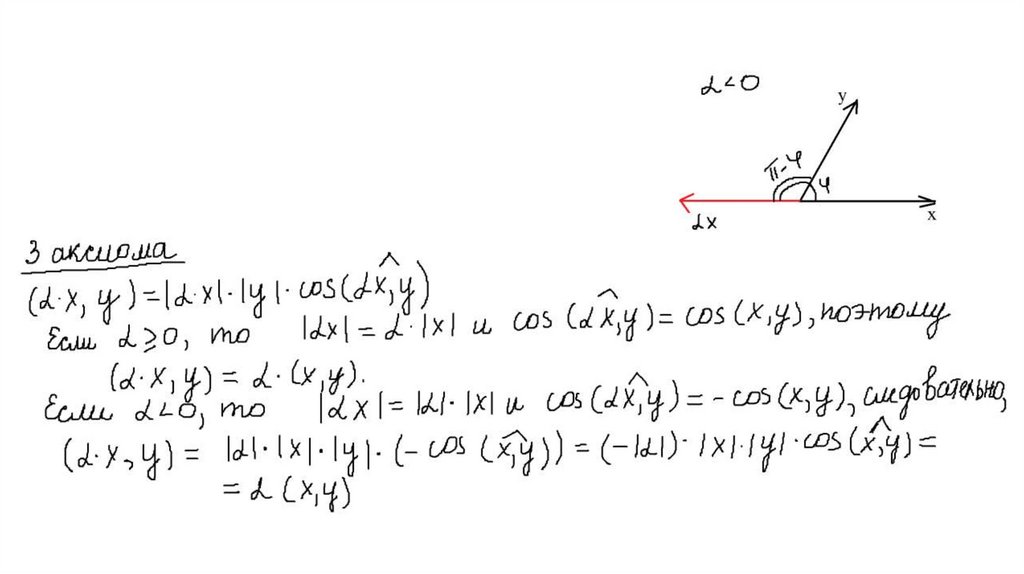 α<0
y
π-φ
φ
αx
x
3 аксиома
(α·x, y)=|α·x|·|y|·cos(αx̂,y)
Если α⩾0, то |αx|=α·|x| и cos(αx̂,y)=cos(x,y), поэтому
(α·x,y)=α·(x,y).
Если α<0, то |αx|=|α|·|x| и cos(αx̂,y)=-cos(x,y), следовательно,
(α·x,y)=|α|·|x|·|y|·(-cos(x̂,y))=(-|α|)·|x|·|y|·cos(x̂,y)=
=α(x,y)